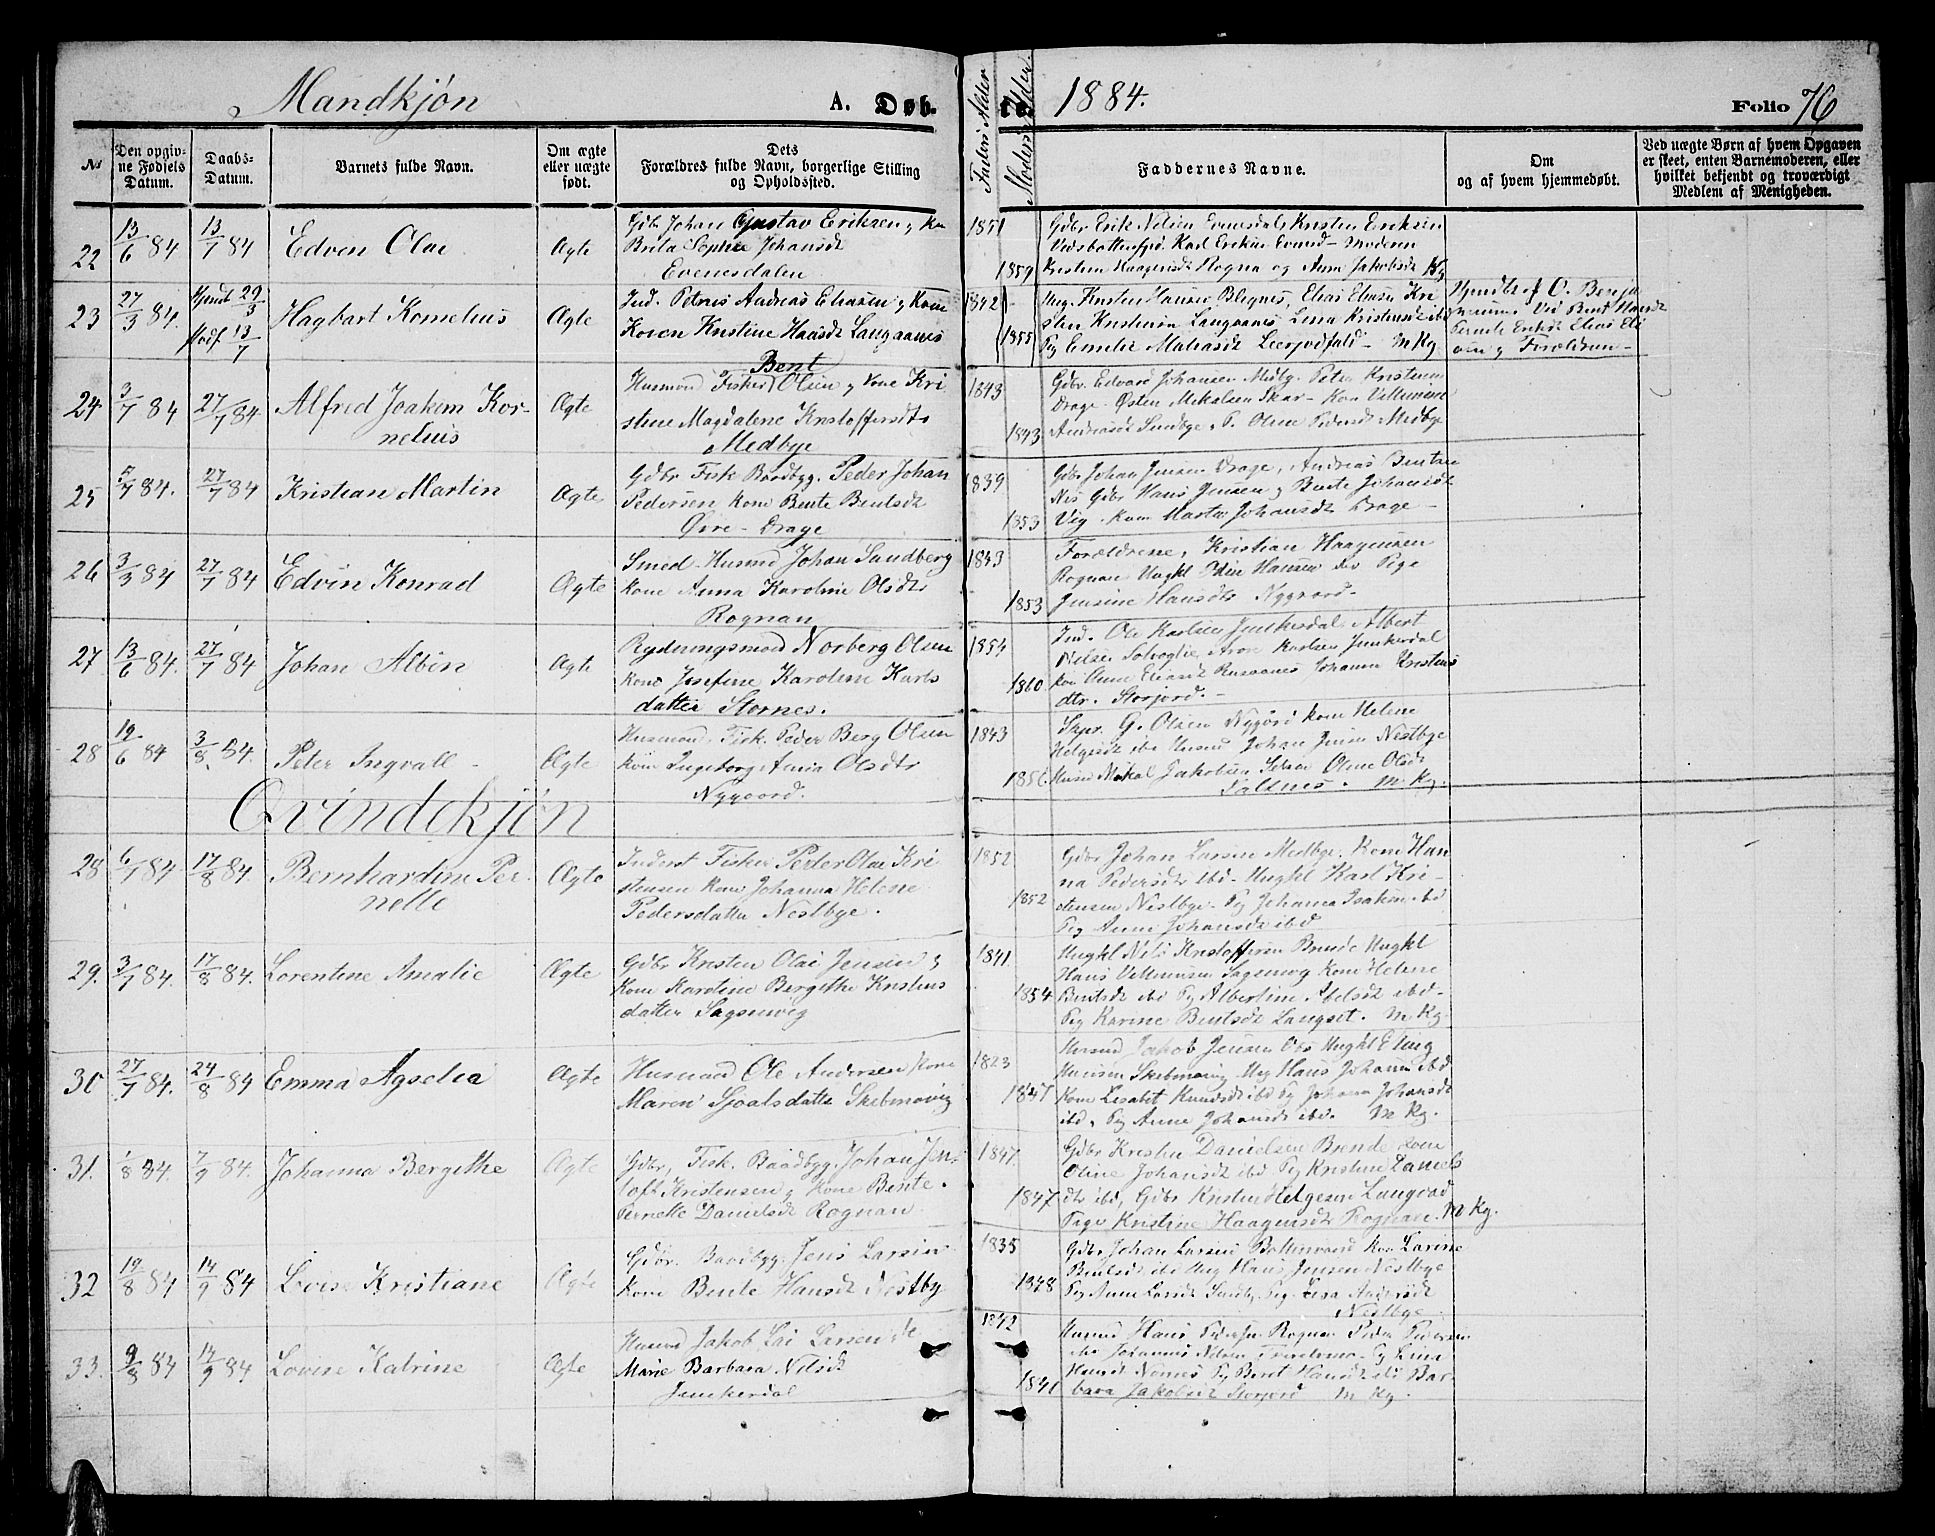 Mandkjøn A. Døb- te. 1884. Folio 76
No
Den opgiv-
ne Fødsels
Datum.
Daabs-
Datum.
Barnets fulde Navn.
Om ægte
eller uægte
født.
Dets
Forældres fulde Navn, borgerlige Stilling
og Opholdssted.
Faderns Alder
Moderns Alder
Faddernes Navne.
Om
og af hvem hjemmedøbt.
Ved uægte Børn af hvem Opgaven
er skeet, enten Barnemoderen, eller
hvilket bekjendt og troværdigt
Medlem af Menigheden.
22 13/6 84 13/7 84 Edven Olai Ægte
Gdbr Johan Gustav Eriksen og Kn
Brita Sophie Johansdt
Evenesdalen
1851
1859
Gdbr Erik Nilsen Evenesdal Kristen Eriksen
Vedsbottenfjd. Karl Eriksen Evensd- Moderen
Kristen Haagensdt Rogna og Anne Jakobsdt Kg
23 27/3 84. Hjmdt 29/3 Stadf 13/7 Hagbart Kornelius Ægte
Ind. Petrus Andreas Eliasen og Kone
Karen Kristine Haasdt Langaanes
1842
1855
Ung. Kristen Hansen Blegnes, Elias Eliasen Kri
sten Kristensen Langaanes Lina Kristensdt ibd
Pg Emelie Matiasdt Leerjodfald - M Kg
Hjmdbt af O. Benja
Ved Bent Hansdt
Elias Eli
og Forældren-
24 3/7 84 27/7 84 Alfred Joakim Kor-
nelius
Ægte
Bent
Husmand Fisker Olsen og Kone Kri
stine Magdalene Kristoffersdtr
Medbye
1843
1843
Gdbr. Edvard Johansen Medbg. Peter Kristensen
Drage Østen Mikalsen Skar- Kon Villumine
Andreasdt Sundbye, P. Oline Pedersdt Medbye
25 5/7 84. 27/7 84 Kristian Martin Ægte
Gdbr Fisk Baadbyg. Peder Johan
Pedersen Kone Bente Bentsdt
Øvre-Drage
1839
1853
Gdbr Johan Jensen Drage, Andreas Bentsen
Nes Gdbr Hans Jensen og Bente Johansdt
Vig. Kone Marta Johansdt Drage-
26 3/3 84 27/7 84 Edvin Konrad Ægte
Smed- Husmd Johan Sundberg
Kone Anna Karoline Olsdtr
Rognan
1843
1853
Forældrene, Kristian Haagensen
Rognan Ungkl Edin Hansen ibd Pige
Jensine Hansdtr Nygaard-
27. 13/6 84. 27/7 84 Johan Albin Ægte
Rydningsmand Norberg Olsen
Kone Josefine Karoline Karls
datter Stornes.
1854
1860
Ind. Ole Karlsen Junkerdal Albert
Nielsen Solvaglie, Aron Karlsen Junkerdal
Kon Eliasdt Rusaanes Johanna Kristens
dtr. Storjord.-
28 19/6 84 3/8 84. Peter Ingvall- Ægte
Husmand Fisk. Peder Berg Olsen
Kone Ingeborg Anna Olsdtr
Nygaard.
1843
1856
G. Olsen Nygård Kone Helene
Helgesdt ibd Husmd Johan Jensen Nestbye
Husmd Mikal Jakobsen Oline Olsdt
Saltnes. M. Kg.
Qvindekjøn
28 6/7 84 17/8 84. Bernhardine Per-
nelle
Ægte
Inderst Fisker Peder Olai Kri
stensen Kone Johanna Helene
Pedersdatter Nestbye.
1852
1852
Gdbr Johan Larsen Medbye. Kone Han
na Pedersdtr ibd- Ungkl Karl Kri-
stensen Nestbye- Pg Johanna Isaksen ibd
Pg Anne Johansdt ibd
29. 3/7 84. 17/8 84. Lorentine Amalie Ægte
Gdbr Kristen Olai Jensen og
Kone Karoline Bergithe Kristens
datter Sagenvig
1841
1854
Ungkl Nils Kristoffersen Brende Ungkl
Hans Villumsen Sagenvig Kone Helene
Bentsdt ibd Pg Albertine Abelsdt ibd-
Pg Karine Bentsdt Langset. M Kg
30 27/7 84. 24/8 84 Emma Agselia Ægte
Husmand Ole Andersen Kone
Maren Sjoalsdatter Skebmovig
1823
1847
Husmd Jakob Jensen Ungkl
Skebmovig Ung Hans Johansen ibd
Kone Lisabet Knudsdt ibd Pg Johanna Johansdt
ibd, Pg Anne Johansdt ibd. M Kg.
31. 1/8 84. 7/9 84. Johanna Bergithe Ægte
Gdbr, Fisk. Baadbyg. Johan Jen-
toft Kristensen og Kone Bente
Pernelle Danielsdt Rognan
1847.
1847
Gdbr Kresten Danielsen Brende Kone
Oline Johansdt ibd Pg Kristine Daniels
dtr ibd, Gdbr Kristen Helgesen Langvad
Pige Kristine Haagensdt Rognan. M Kg.
32 19/8 84 14/9 84 Lovise Kristiane Ægte
Gdbr. Baadbyg. Jens Larsen
Kone Bente Hansdt Nestby
1835
1848
Gdbr Johan Larsen Bottenvand Kon Larine
Bentsdt ibd Ung Hans Jensen Nestbye
Pg Anne Larsdt Sundby Pg. Lisa Andersdt
Nestbye
33. 9/8 84 14/9 84 Lovise Katrine Ægte
Husmd Jakob Lai Larsen
Marie Barbara Nilsdt
Junkerdal
1842
1841
Husmd Hans Pedersen Rognan Peder Pedersen
ibd Johannes Nilsen Pg Lina
Hansdt Pg Beret Hansdt ibd Bar
bara Jakobsdt Storjord M Kg.